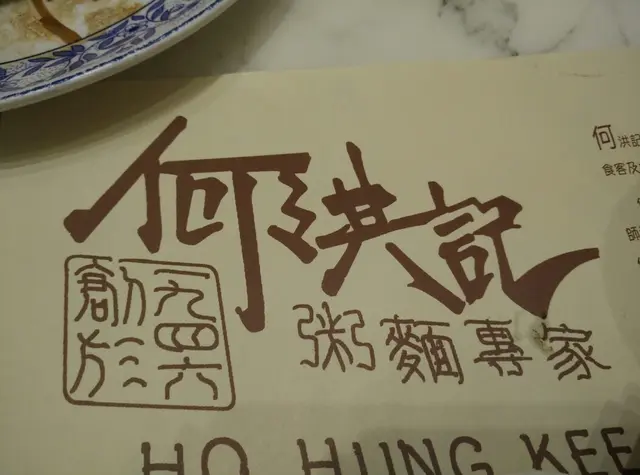 何洪記
創於
一九四六
粥麵專家
HO HUNG KEE
何洪記
食客及
師